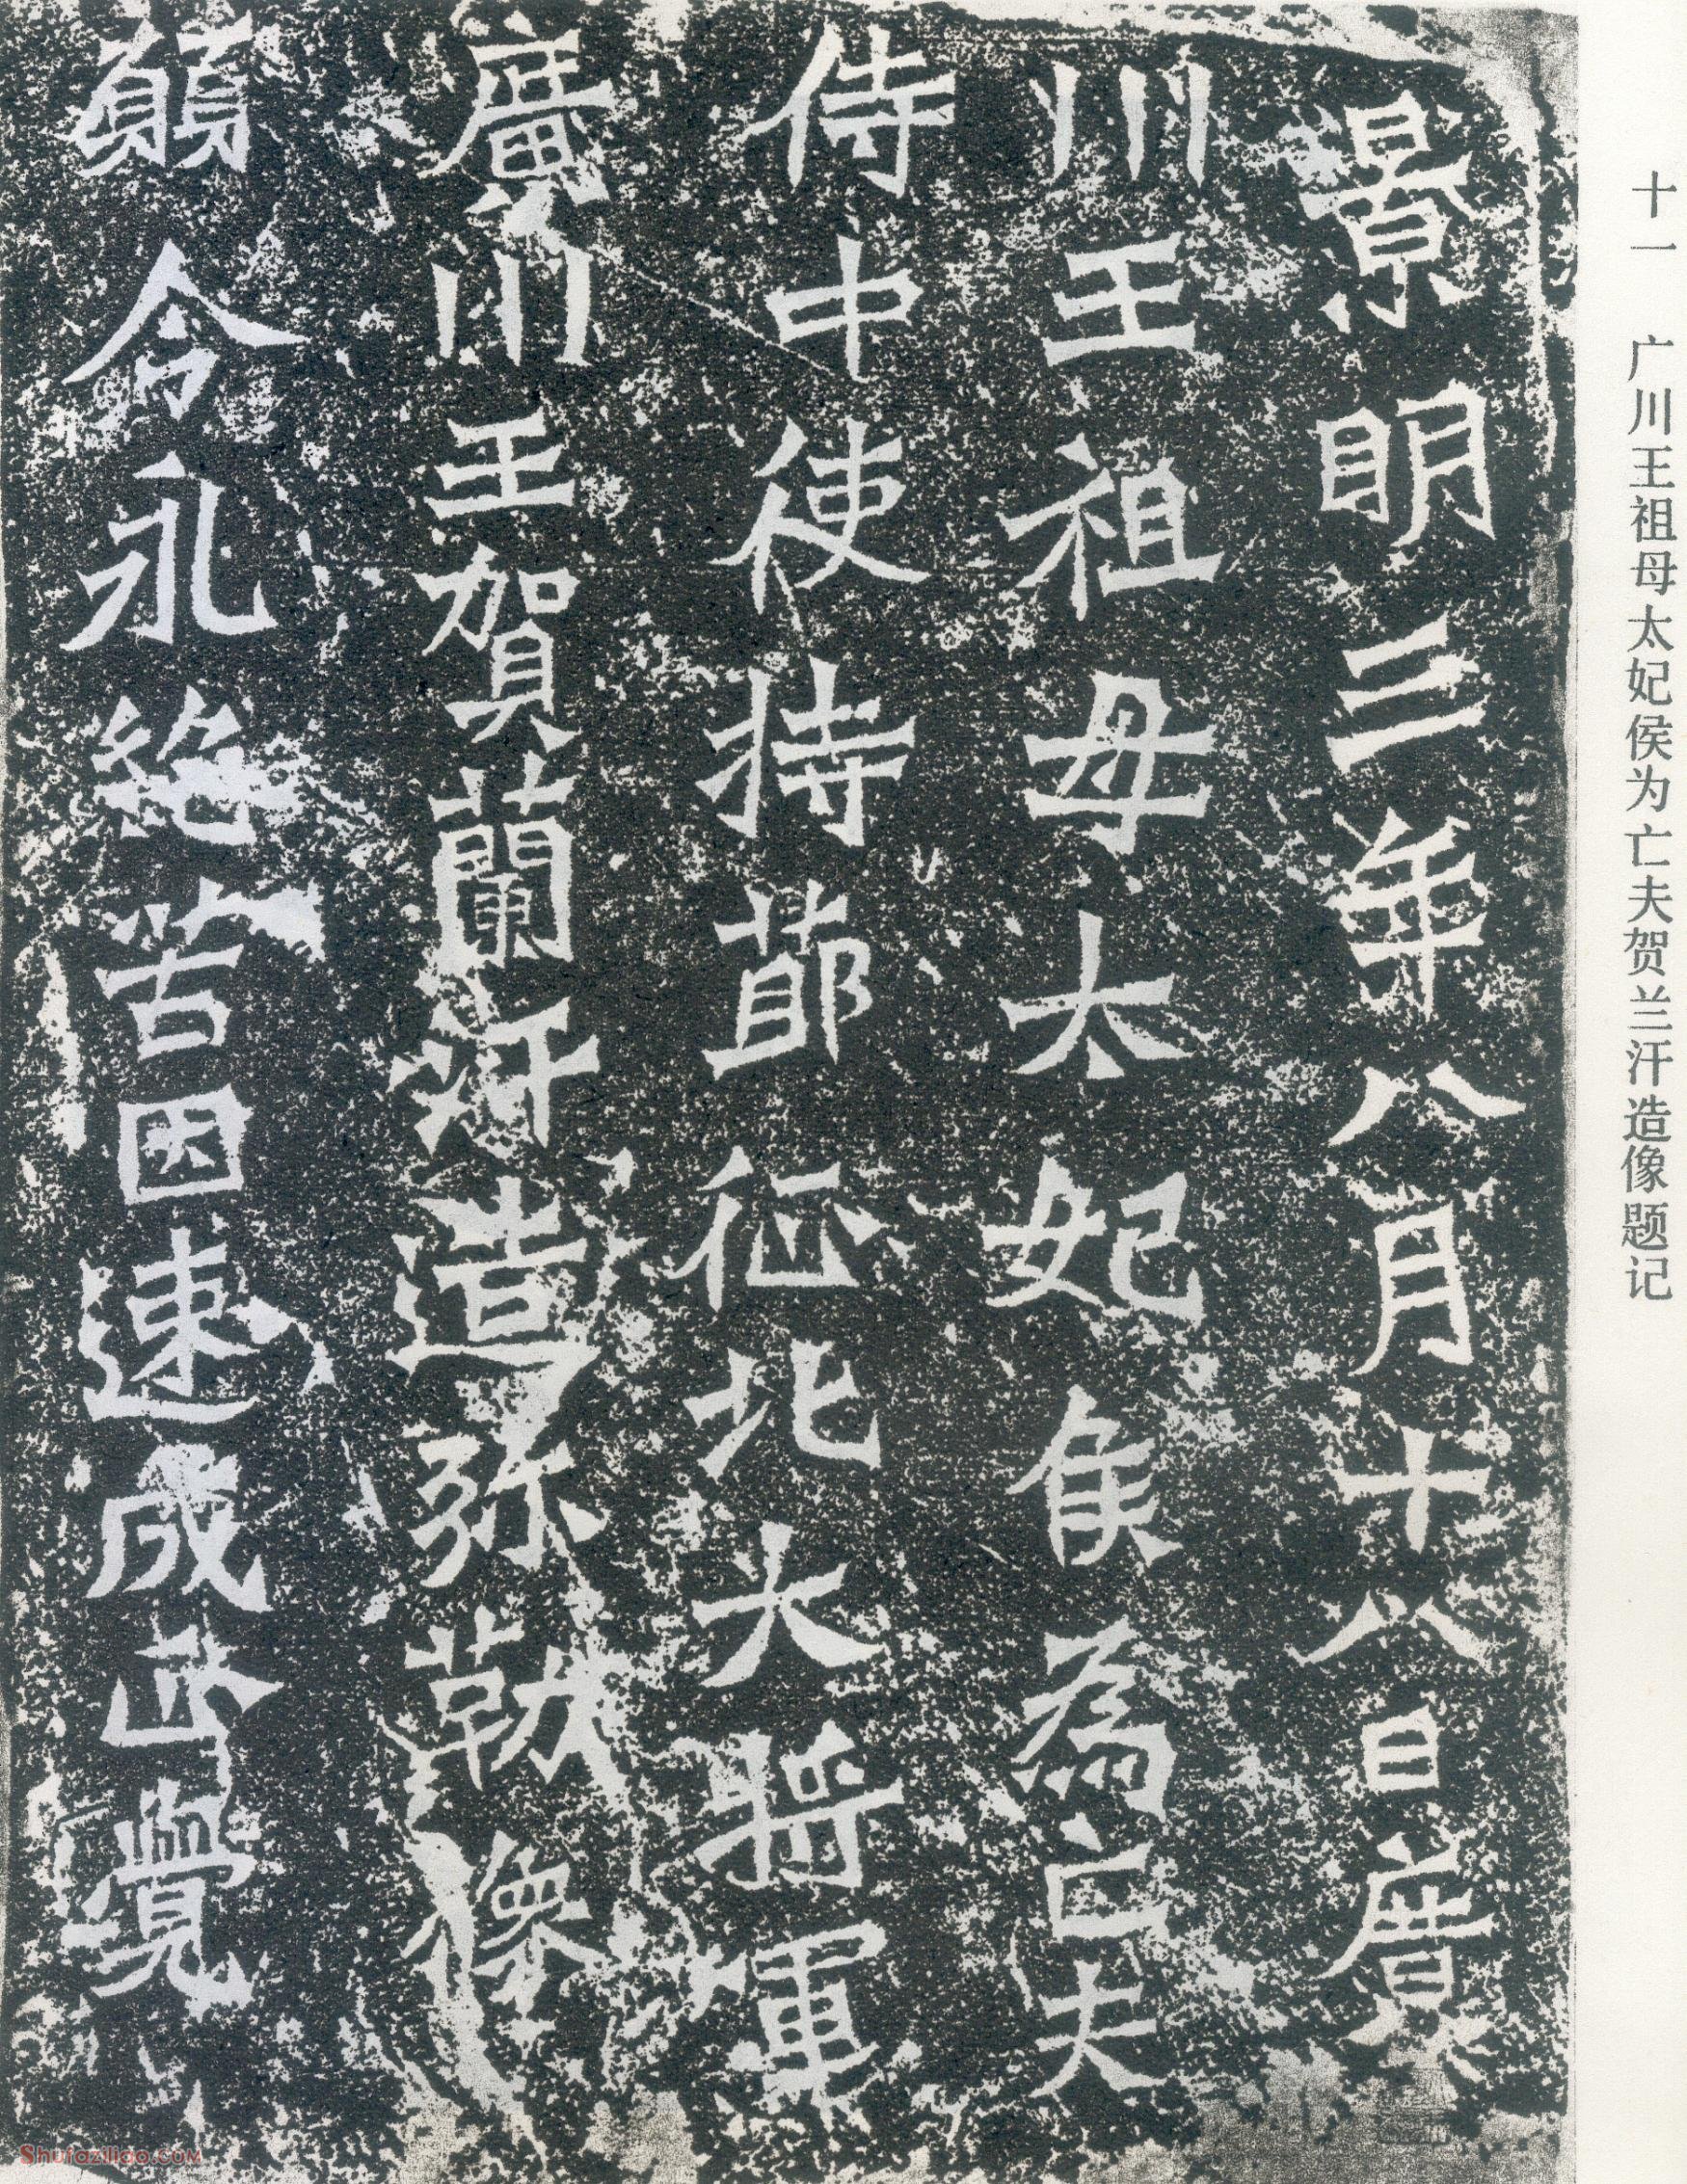 十一 广川王祖母太妃侯为亡夫贺兰汗造像题记
景明三年八月十八日廣
川王祖母太妃侯為亡夫
侍中使持節征北大將軍
廣川王賀蘭汗造弥勒像
願令永絕苦因速成正覺
Shufaziliao.com